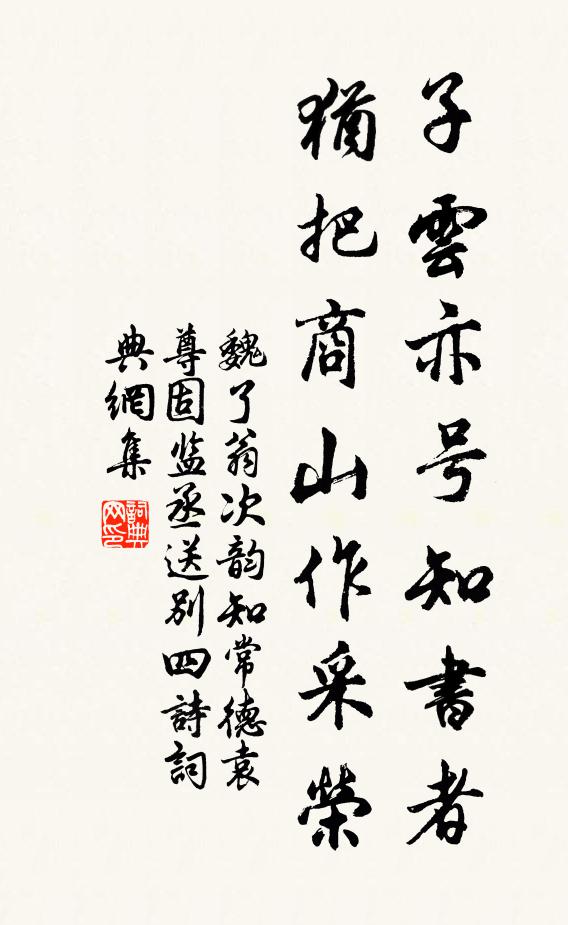 子雲亦号知書者
猶把商山作采榮
魏了翁次韵知常德袁
尊固监丞送别四詩詞
典網集
詞典网印